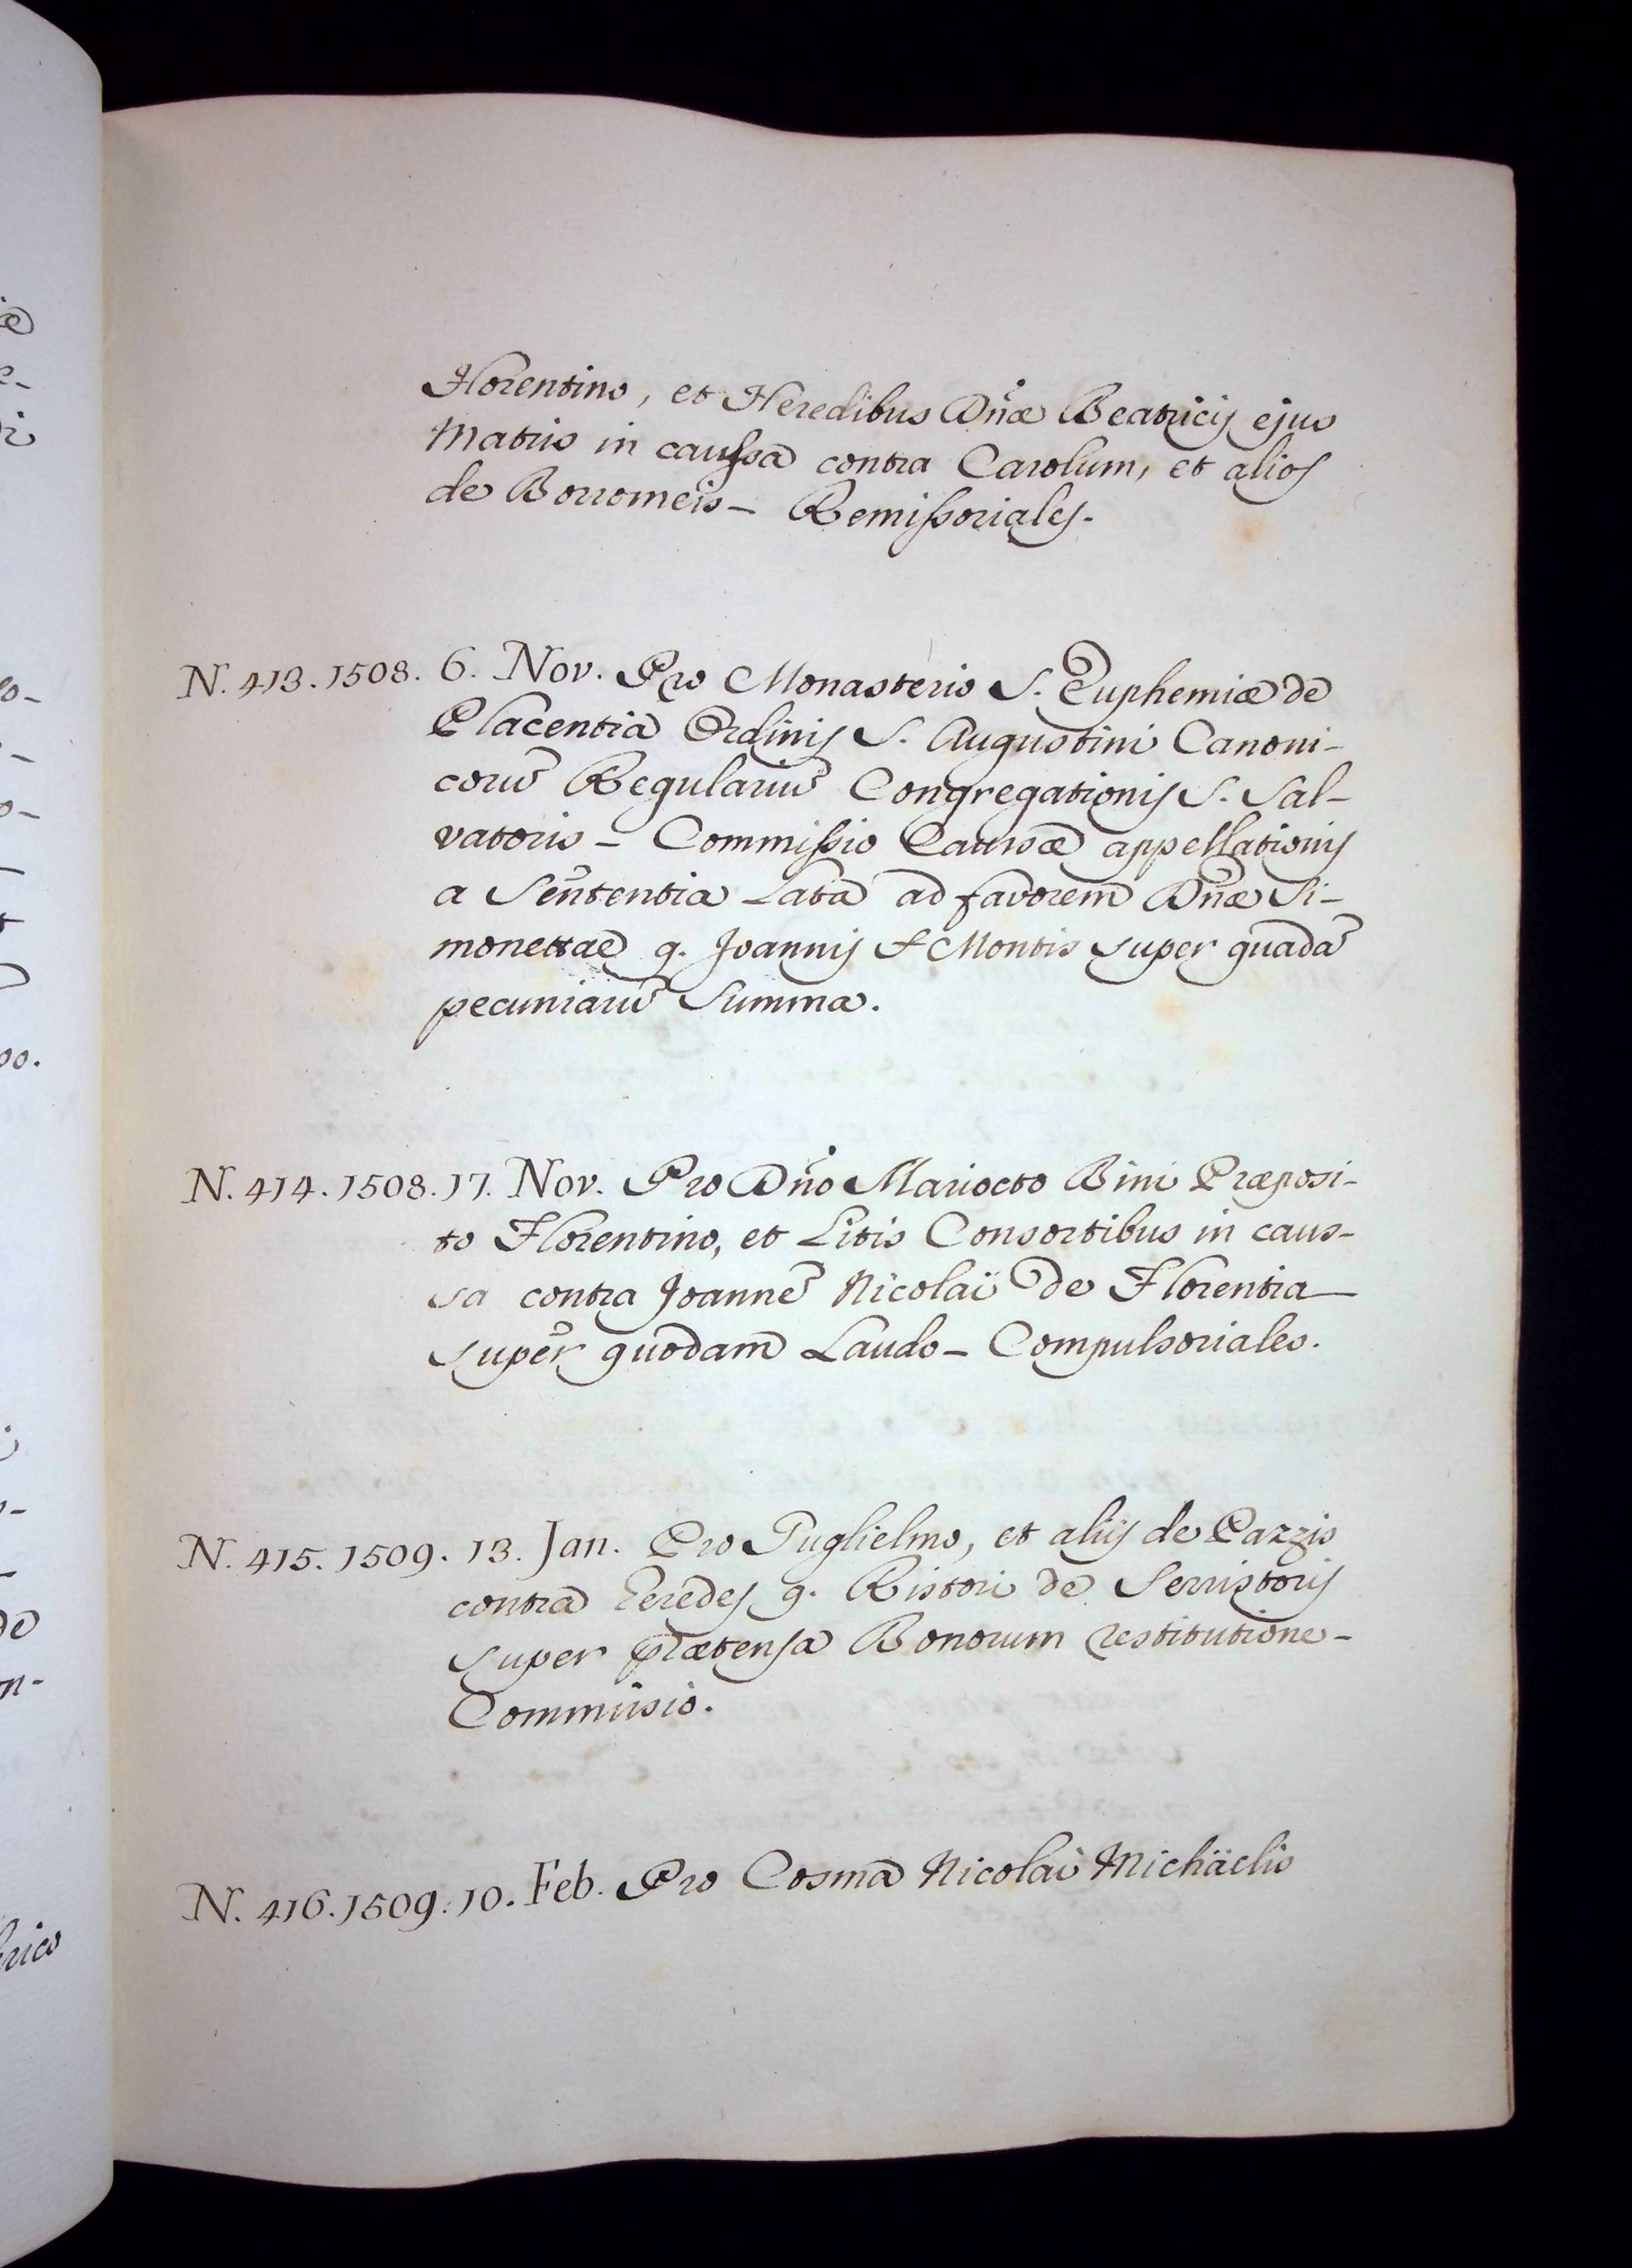 Florentino, et Heredibus Dñæ Beatricis ejus
Matris in caussa contra Carolum, et alios
de Borromeis – Remissoriales.
N. 413. 1508. 6. Nov. Pro Monasterio S. Euphemiæ de
Placentia Ordinis S. Augustini Canoni-
corũ Regulariũ Congregationis S. Sal-
vatoris – Commissio Causæ appellationis
a Sententia Lata ad favorem Dñæ Si-
monettae q. Joannis Montis super quadã
pecuniarũ Summa.
N. 414. 1508. 17. Nov. Pro Dño Mariocto Bini Præposi-
to Florentino, et Litis Consortibus in caus-
sa contra Joannẽ Nicolai de Florentia
super quodam Laudo – Compulsoriales.
N. 415. 1509. 13. Jan. Pro Guglielmo, et aliis de Pazzis
contra Heredes q. Ristori de Serristoris
super prætensa Bonorum restitutione –
Commissio.
N. 416. 1509. 10. Feb. Pro Cosma Nicolai Michäelis